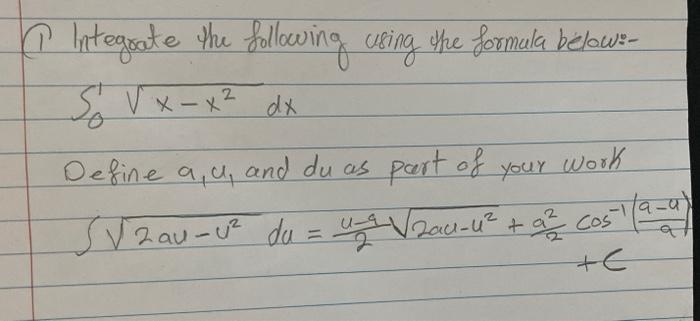 ① Integrate the following using the formula below:-
∫₀¹ √(x-x²) dx
Define a, u, and du as part of your work
∫√(2au-u²) du = (u-a)/2 √(2au-u²) + a²/2 cos⁻¹((a-u)/a)
+C